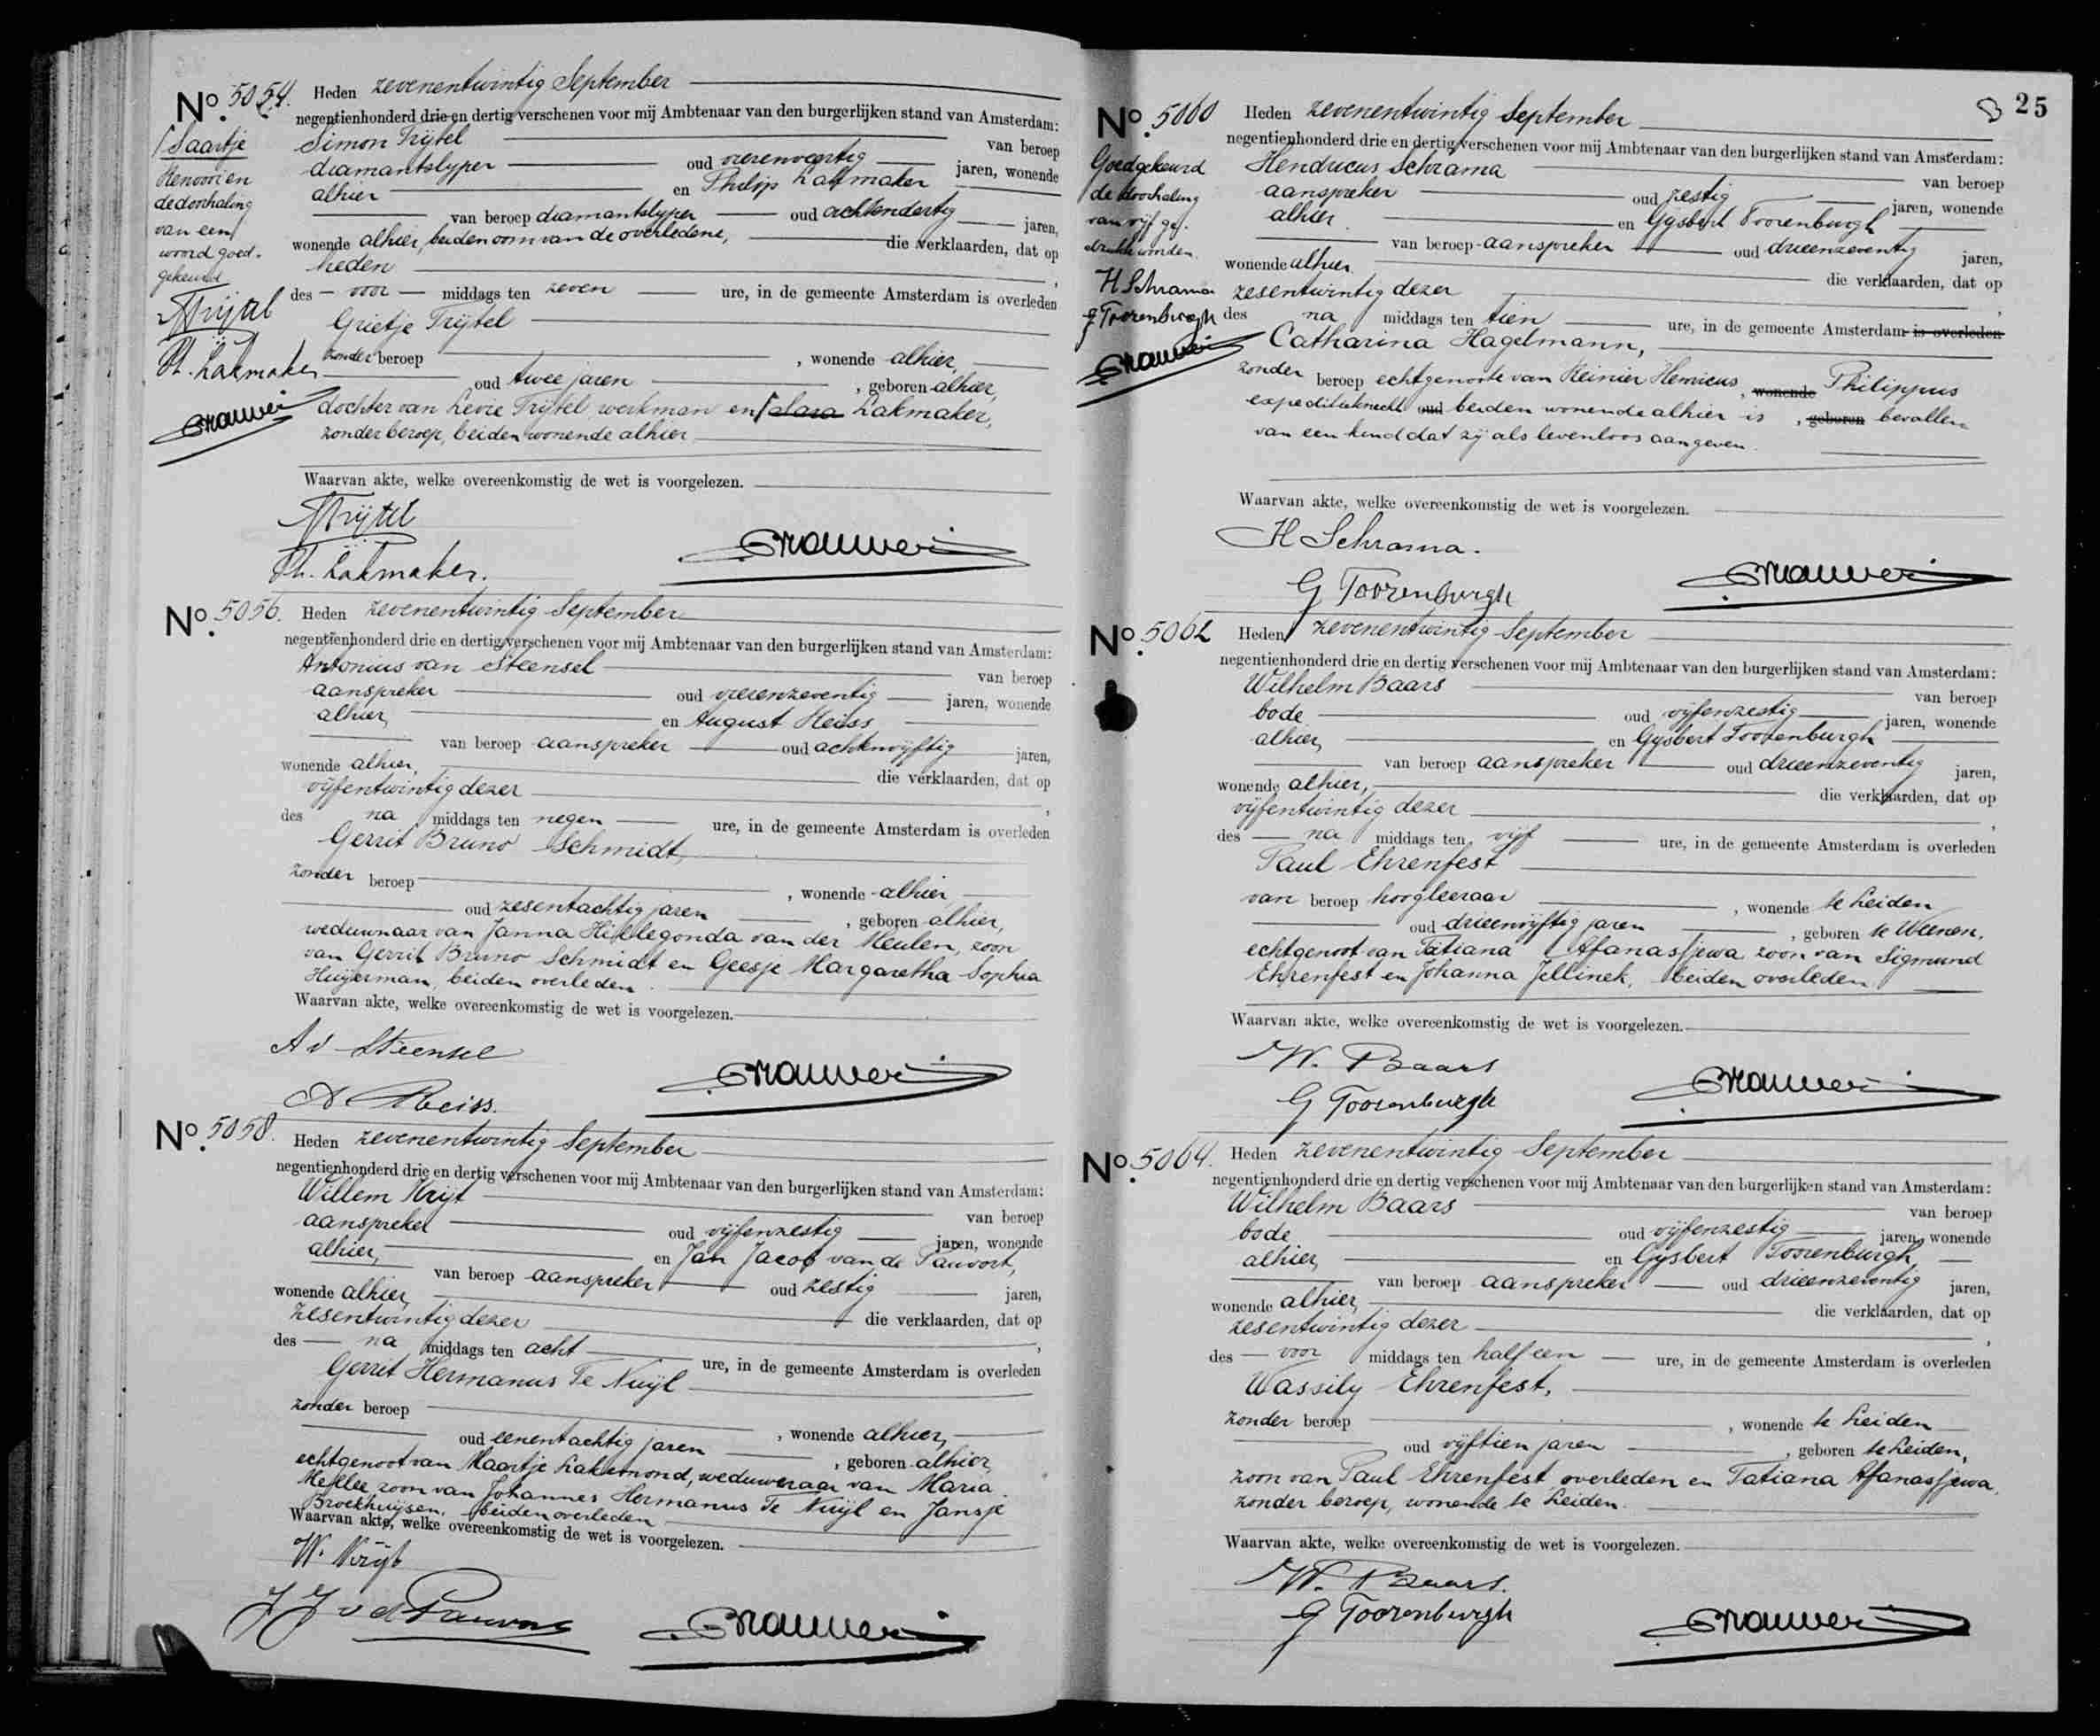 No. 5054. Heden zevenentwintig September
negentienhonderd drie en dertig verschenen voor mij Ambtenaar van den burgerlijken stand van Amsterdam:
Simon Trijtel van beroep
diamantslyper oud vierenveertig jaren, wonende
alhier en Philip Lakmaker
van beroep diamantslyper oud achtendertig jaren,
wonende alhier, beiden oom van de overledene, die verklaarden, dat op
heden ,
des voor middags ten zeven ure, in de gemeente Amsterdam is overleden
Grietje Trijtel
zonder beroep , wonende alhier,
oud twee jaren , geboren alhier,
dochter van Levie Trijtel werkman en Sara Lakmaker,
zonder beroep, beiden wonende alhier
Waarvan akte, welke overeenkomstig de wet is voorgelezen.
STrijtel
Ph. Lakmaker.
Saartje
de doorhaling
van een
woord goed-
gekeurd
STrijtel
Ph. Lakmaker
No. 5056. Heden zevenentwintig September
negentienhonderd drie en dertig verschenen voor mij Ambtenaar van den burgerlijken stand van Amsterdam:
Antonius van Steensel van beroep
aanspreker oud vierenzeventig jaren, wonende
alhier, en August Reiss
van beroep aanspreker oud achtenvijftig jaren,
wonende alhier, die verklaarden, dat op
vijfentwintig dezer ,
des na middags ten negen ure, in de gemeente Amsterdam is overleden
Gerrit Bruno Schmidt,
zonder beroep , wonende alhier
oud zesentachtig jaren , geboren alhier,
weduwnaar van Janna Hillegonda van der Meulen, zoon
van Gerrit Bruno Schmidt en Geesje Margaretha Sophia
Huijerman, beiden overleden.
Waarvan akte, welke overeenkomstig de wet is voorgelezen.
A v Steensel
A. Reiss.
No. 5058. Heden zevenentwintig September
negentienhonderd drie en dertig verschenen voor mij Ambtenaar van den burgerlijken stand van Amsterdam:
Willem Krijt van beroep
aanspreker oud vijfenzestig jaren, wonende
alhier, en Jan Jacob van de Pauvort,
van beroep aanspreker oud zestig jaren,
wonende alhier, die verklaarden, dat op
zesentwintig dezer ,
des na middags ten acht ure, in de gemeente Amsterdam is overleden
Gerrit Hermanus Te Nuijl
zonder beroep , wonende alhier,
oud eenentachtig jaren , geboren alhier,
echtgenoot van Maartje Lakemond, weduwnaar van Maria
zoon van Johannes Hermanus Te Nuijl en Jansje
Broekhuijsen, beiden overleden
Waarvan akte, welke overeenkomstig de wet is voorgelezen.
W. Krijt
J J v d Pauvort
25
No. 5060 Heden zevenentwintig September
negentienhonderd drie en dertig verschenen voor mij Ambtenaar van den burgerlijken stand van Amsterdam:
Hendricus Schrama van beroep
aanspreker oud zestig jaren, wonende
alhier en Gysbert Toorenburgh
van beroep aanspreker oud drieenzeventig jaren,
wonende alhier die verklaarden, dat op
zesentwintig dezer ,
des na middags ten tien ure, in de gemeente Amsterdam is overleden
Catharina Hagelmann,
zonder beroep echtgenoote van Reinier Henricus , wonende Philippus
expeditieknecht oud beiden wonende alhier is , geboren bevallen
van een kind dat zij als levenloos aangeven.
Waarvan akte, welke overeenkomstig de wet is voorgelezen.
H Schrama.
G Toorenburgh
Goedgekeurd
de doorhaling
van vijf ge-
drukte woorden.
H Schrama
G Toorenburgh
No. 5062 Heden zevenentwintig September
negentienhonderd drie en dertig verschenen voor mij Ambtenaar van den burgerlijken stand van Amsterdam:
Wilhelm Baars van beroep
bode oud vijfenzestig jaren, wonende
alhier, en Gysbert Toorenburgh
van beroep aanspreker oud drieenzeventig jaren,
wonende alhier, die verklaarden, dat op
vijfentwintig dezer ,
des na middags ten vijf ure, in de gemeente Amsterdam is overleden
Paul Ehrenfest
van beroep hoogleeraar , wonende te Leiden
oud drieenvijftig jaren , geboren te Weenen,
echtgenoot van Tatiana Afanassjewa zoon van Sigmund
Ehrenfest en Johanna Jellinek, beiden overleden
Waarvan akte, welke overeenkomstig de wet is voorgelezen.
W. Baars
G Toorenburgh
No. 5064. Heden zevenentwintig September
negentienhonderd drie en dertig verschenen voor mij Ambtenaar van den burgerlijken stand van Amsterdam:
Wilhelm Baars van beroep
bode oud vijfenzestig jaren, wonende
alhier, en Gysbert Toorenburgh,
van beroep aanspreker oud drieenzeventig jaren,
wonende alhier, die verklaarden, dat op
zesentwintig dezer ,
des voor middags ten half een ure, in de gemeente Amsterdam is overleden
Wassily Ehrenfest,
zonder beroep , wonende te Leiden
oud vijftien jaren , geboren te Leiden,
zoon van Paul Ehrenfest overleden en Tatiana Afanassjewa,
zonder beroep, wonende te Leiden.
Waarvan akte, welke overeenkomstig de wet is voorgelezen.
W. Baars.
G Toorenburgh